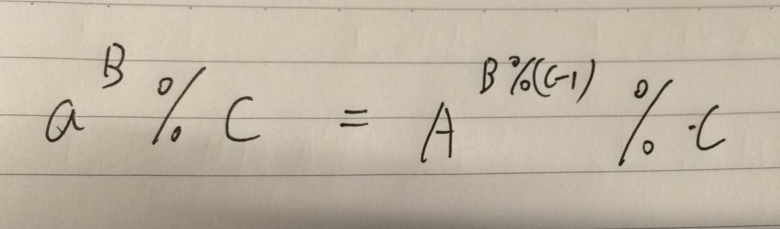 a^B % C = A^{B%(C-1)} % C